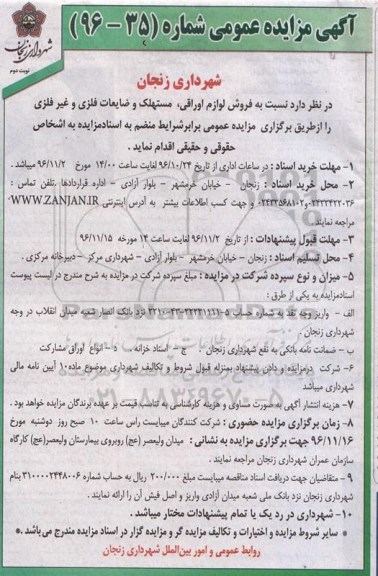 آگهی مزایده عمومی شماره (۳۵ – ۹۶)
شهرداری زنجان
نوبت دوم
شهرداری زنجان
در نظر دارد نسبت به فروش لوازم اوراقی، مستهلک و ضایعات فلزی و غیر فلزی
را ازطریق برگزاری مزایده عمومی برابرشرایط منضم به اسنادمزایده به اشخاص
حقوقی و حقیقی اقدام نماید .
۱- مهلت خرید اسناد : در ساعات اداری از تاریخ ۹۶/۱۰/۲۴ لغایت ساعت ۱۴/۰۰ مورخ ۹۶/۱۱/۲ میباشد .
۲- محل خرید اسناد : زنجان - خیابان خرمشهر - بلوار آزادی - اداره قراردادها ,تلفن تماس :
۰۲۴۳۳۴۲۲۰۳۶و۰۲۴۳۳۵۶۸۱۰۲ و جهت کسب اطلاعات بیشتر به آدرس اینترنتی WWW.ZANJAN.IR
مراجعه نمایند .
۳- مهلت قبول پیشنهادات : از تاریخ ۹۶/۱۱/۲ لغایت ساعت ۱۴ مورخه ۹۶/۱۱/۱۵
۴- محل تسلیم اسناد : زنجان - خیابان خرمشهر - بلوار آزادی - شهرداری مرکز -دبیرخانه مرکزی .
۵- میزان و نوع سپرده شرکت در مزایده : مبلغ سپرده شرکت در مزایده به شرح مندرج در لیست پیوست
اسنادمزایده به یکی از طرق :
الف - واریز وجه نقد به شماره حساب ۵-۲۲۳۴۱۱۱۱-۴۳-۳۲۱۰ نزد بانک انصار شعبه میدان انقلاب در وجه
شهرداری زنجان
ب - ضمانت نامه بانکی به نفع شهرداری زنجان ج - اسناد خزانه د - انواع اوراق مشارکت
۶- شرکت درمزایده و دادن پیشنهاد بمنزله قبول شروط و تکالیف شهرداری موضوع ماده۱۰ آیین نامه مالی
شهرداری میباشد
۷- هزینه انتشار آگهی به صورت مساوی و هزینه کارشناسی به تناسب قیمت بر عهده برندگان مزایده خواهد بود .
۸- زمان برگزاری مزایده حضوری : شرکت کنندگان میبایست راس ساعت ۱۰ صبح روز دوشنبه مورخ
۹۶/۱۱/۱۶ جهت برگزاری مزایده به نشانی : میدان ولیعصر (عج) روبروی بیمارستان ولیعصر(عج) کارگاه
سازمان عمران شهرداری زنجان مراجعه نمایند .
۹ - متقاضیان جهت دریافت اسناد مناقصه میبایست مبلغ ۲۰۰/۰۰۰ ریال به حساب شماره ۳۱۰۰۰۰۲۴۴۸۰۰۶ بنام
شهرداری زنجان نزد بانک ملی شعبه میدان آزادی واریز و اصل فیش آن را ارائه نمایند .
۱۰- شهرداری در رد یک یا تمام پیشنهادات مختار میباشد .
* سایر شروط مزایده و اختیارات و تکالیف مزایده گر و مزایده گزار در اسناد مزایده مندرج می باشد . *
روابط عمومی و امور بین الملل شهرداری زنجان